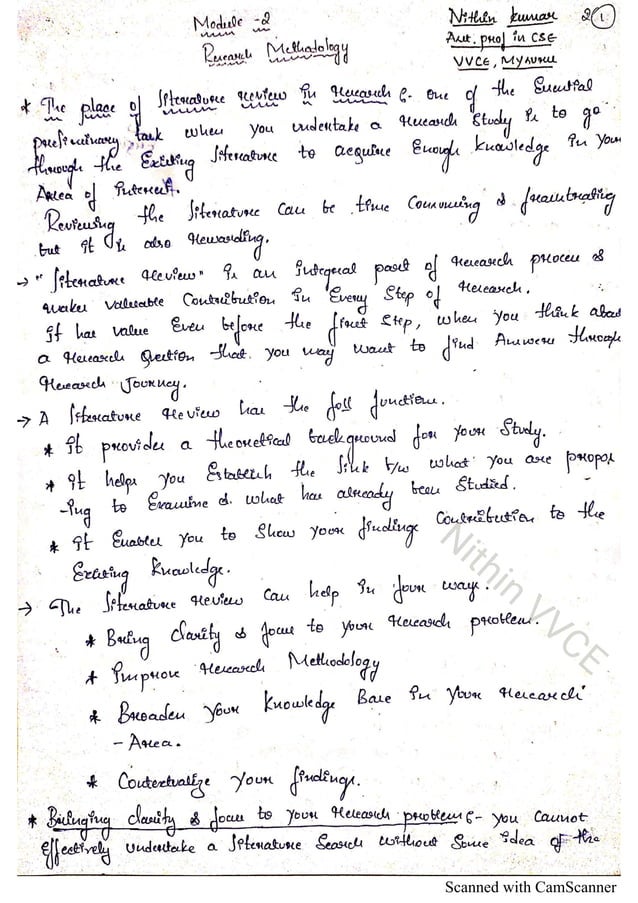 Module -2
Research Methodology
Nithin kumar
Asst. prof in CSE
VVCE, Mysuru
2
1
* The place of literature review in research :- one of the Essential
preliminary task when you undertake a research Study is to go
through the Existing literature to acquire Enough knowledge in your
Area of interest.
Reviewing the literature can be time consuming & frustrating
but it is also rewarding.
→ "literature review" is an integral part of research process &
makes valuable contribution in Every Step of research.
it has value Even before the first step, when you think about
a research Question that you may want to find Answers through
research Journey.
→ A literature review has the foll function.
* it provides a theoretical background for your Study.
* it helps you Establish the link b/w what you are propos
-ing to Examine & what has already been Studied.
* it Enables you to Show your findings Contribution to the
Existing knowledge.
→ The literature review can help in four way.
* Bring Clarity & focus to your research problem.
* Improve research Methodology
* Broaden your knowledge Base in your research
- Area.
* Contextualize your findings.
* Bringing clarity & focus to your research problem :- you cannot
Effectively undertake a literature Search without Some idea of the
Nithin VVCE
Scanned with CamScanner